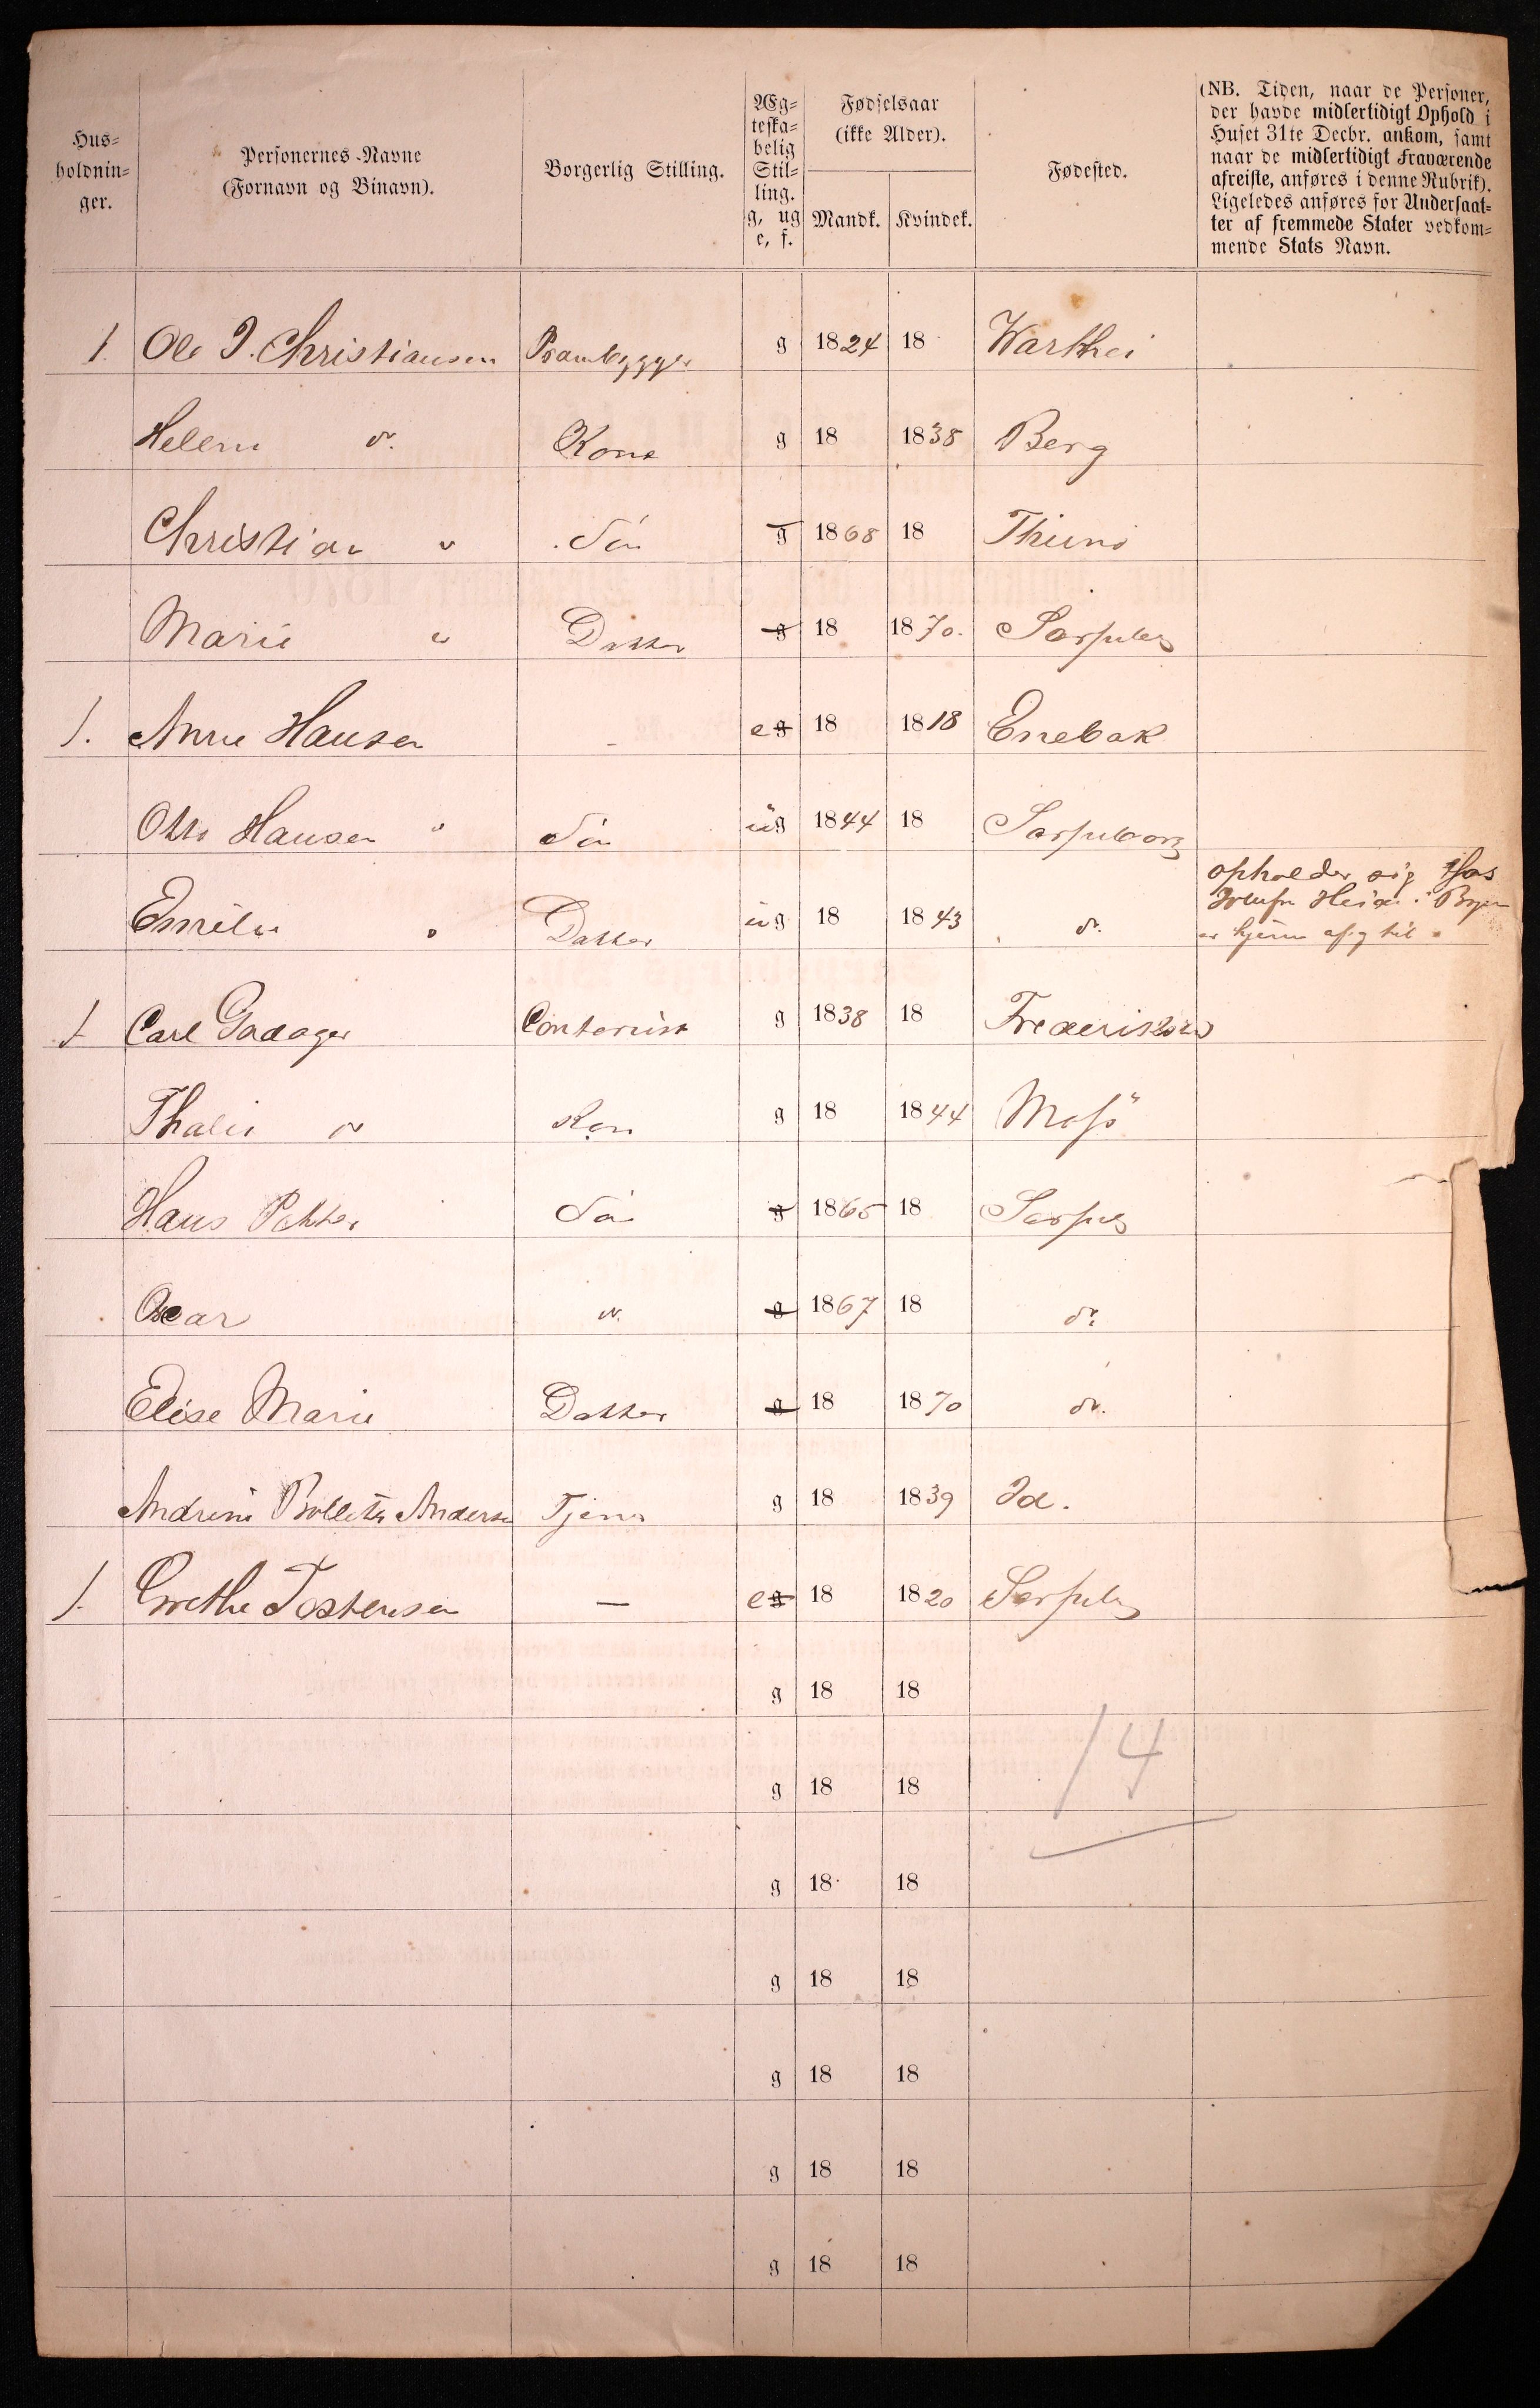 Hus=
holdnin=
ger.
Personernes Navne
(Fornavn og Binavn).
Borgerlig Stilling.
Æg=
teska=
belig
Stil=
ling.
g, ug
e, f.
Fødselsaar
(ikke Alder).
Mandk. Kvindek.
Fødested.
(NB. Tiden, naar de Personer,
der havde midlertidigt Ophold i
Huset 31te Decbr. ankom, samt
naar de midlertidigt Fraværende
afreiste, anføres i denne Rubrik).
Ligeledes anføres for Undersaat=
ter af fremmede Stater vedkom=
mende Stats Navn.
1. Ole J. Christiansen Prambygger g 1824 18
Helene do. Kone g 18 1838 Berg
Christian " Søn g 1868 18 Thunø
Marie " Datter g 18 1870. Sarpsbg
1. Anne Hansen - eg 18 1818 Enebak
Otto Hansen " Søn ug 1844 18 Sarpsborg
Emilie " Datter ug 18 1843 do.
opholder sig hos
i Byen
er hjemme
1 Carl Gadager Contorist g 1838 18 Frederikstad
Thalie do Kone g 18 1844 Moss
Hans Petter Søn g 1865 18 Sarpsbg
Oscar do. g 1867 18 do.
Elise Marie Datter g 18 1870 do.
Andrine Andersen Tjener g 18 1839 Id.
1. Grethe Tostensen — eg 18 1820 Sarpsbg
g 18 18
14
g 18 18
g 18 18
g 18 18
g 18 18
g 18 18
g 18 18